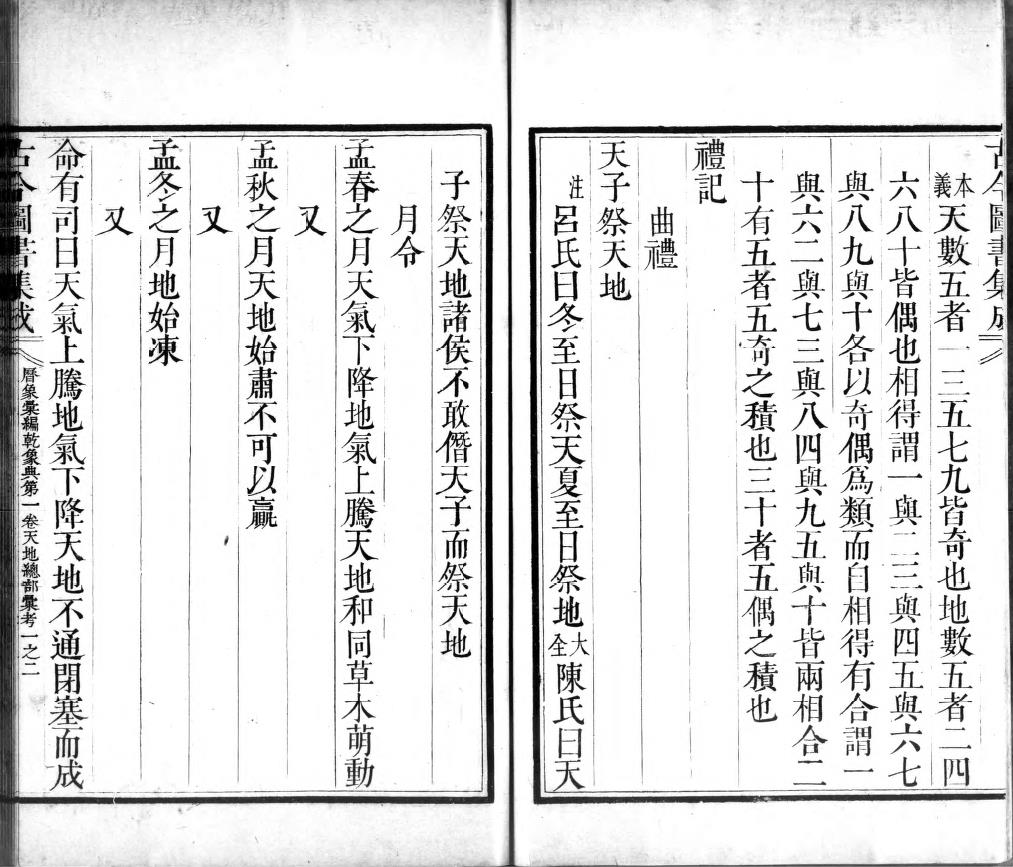 古今圖書集成
本義天數五者一三五七九皆奇也地數五者二四
六八十皆偶也相得謂一與二三與四五與六七
與八九與十各以奇偶爲類而自相得有合謂一
與六二與七三與八四與九五與十皆兩相合二
十有五者五奇之積也三十者五偶之積也
禮記
曲禮
天子祭天地
注呂氏曰冬至日祭天夏至日祭地大全陳氏曰天
子祭天地諸侯不敢僭天子而祭天地
月令
孟春之月天氣下降地氣上騰天地和同草木萌動
又
孟秋之月天地始肅不可以贏
又
孟冬之月地始凍
又
命有司曰天氣上騰地氣下降天地不通閉塞而成
古今圖書集成 曆象彙編乾象典第一卷天地總部彙考一之二